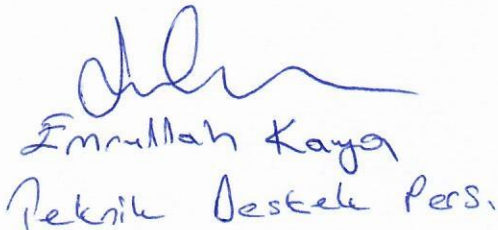 Emrullah Kaya
Teknik Destek Pers.